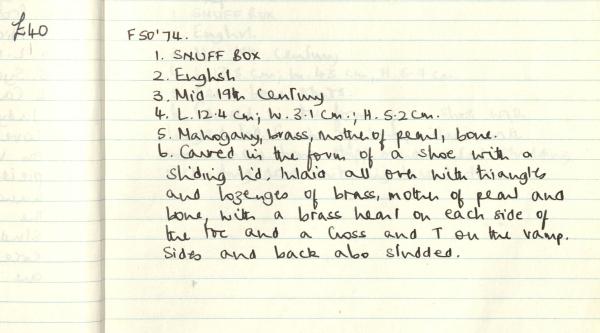 £40
F50'74.
1. SNUFF BOX
2. English
3. Mid 19th Century
4. L. 12.4 cm; W. 3.1 cm.; H. 5.2 cm.
5. Mahogany, brass, mother of pearl, bone.
6. Carved in the form of a shoe with a
sliding lid. Inlaid all over with triangles
and lozenges of brass, mother of pearl and
bone, with a brass heart on each side of
the toe and a Cross and T on the vamp.
Sides and back also studded.